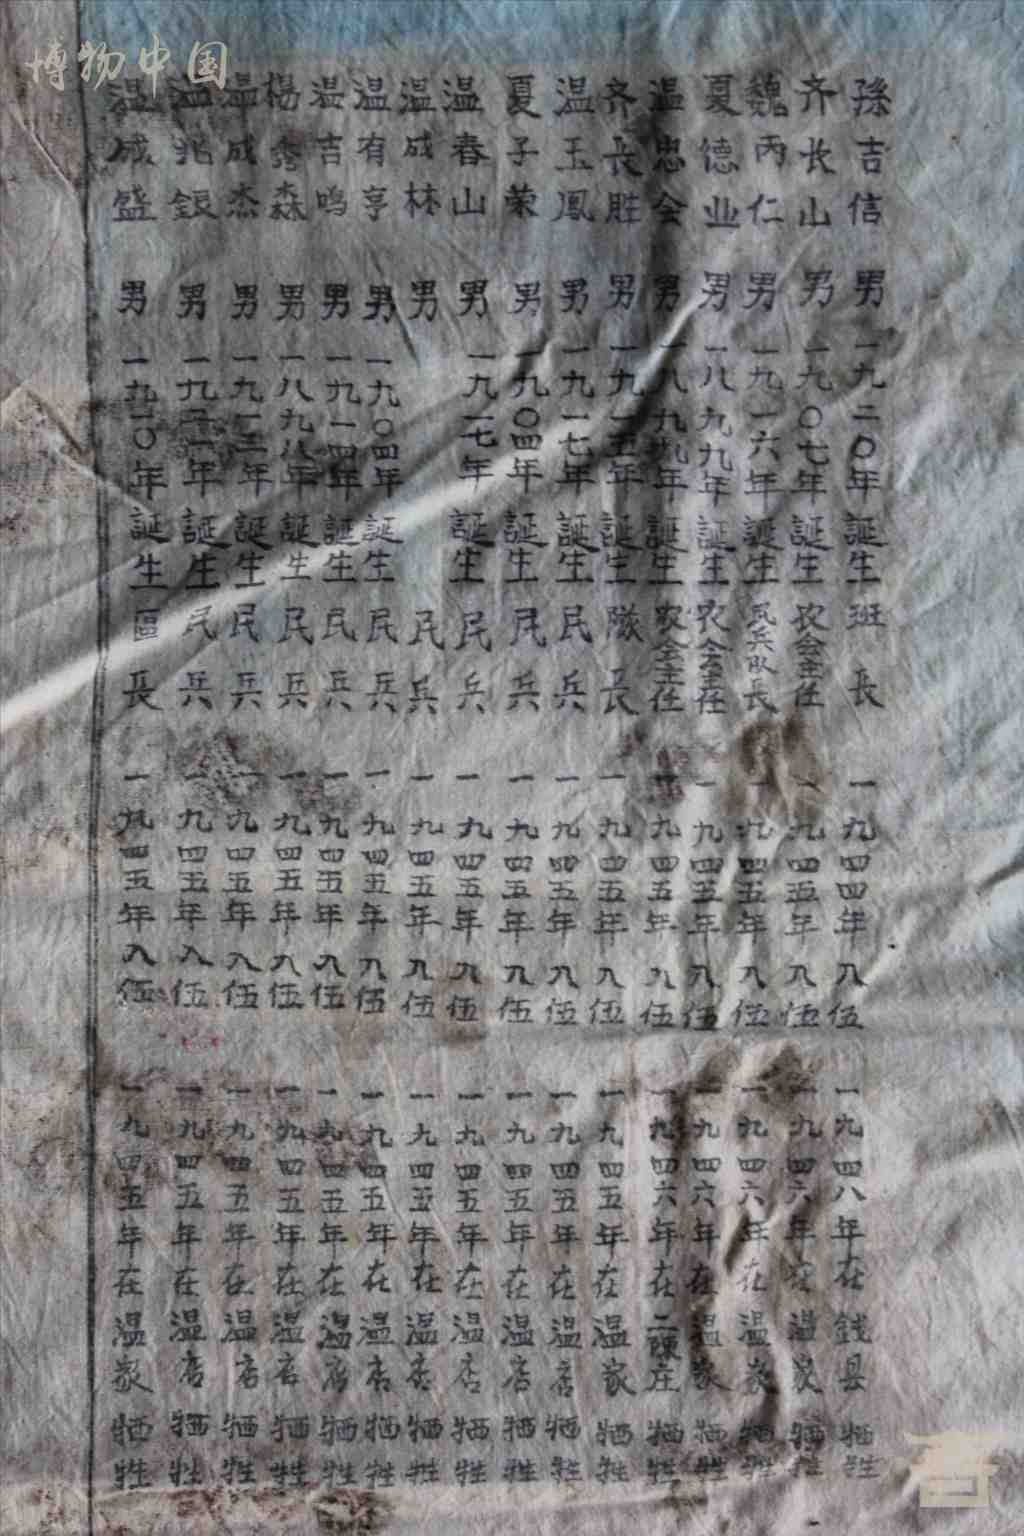 博物中国
孫吉信 男 一九二〇年誕生 班長 一九四四年入伍 一九四八年在錢县牺牲
齐长山 男 一九〇七年誕生 农会主任 一九四五年入伍 一九四六年在温家牺牲
魏丙仁 男 一九一六年誕生 民兵队長 一九四五年入伍 一九四六年在温家牺牲
夏德业 男 一八九九年誕生 农会主任 一九四五年入伍 一九四六年在温家牺牲
温忠会 男 一八九九年誕生 农会主任 一九四五年入伍 一九四六年在二陳庄牺牲
齐長胜 男 一九一五年誕生 隊長 一九四五年入伍 一九四五年在温家牺牲
温玉鳳 男 一九一七年誕生 民兵 一九四五年入伍 一九四五年在温店牺牲
夏子荣 男 一九〇四年誕生 民兵 一九四五年入伍 一九四五年在温店牺牲
温春山 男 一九一七年誕生 民兵 一九四五年入伍 一九四五年在温店牺牲
温成林 男 民兵 一九四五年入伍 一九四五年在温店牺牲
温有亭 男 一九〇四年誕生 民兵 一九四五年入伍 一九四五年在温店牺牲
温吉鸣 男 一九一四年誕生 民兵 一九四五年入伍 一九四五年在温店牺牲
楊秀森 男 一八九八年誕生 民兵 一九四五年入伍 一九四五年在温店牺牲
温成杰 男 一九一二年誕生 民兵 一九四五年入伍 一九四五年在温店牺牲
温兆銀 男 一九二一年誕生 民兵 一九四五年入伍 一九四五年在温店牺牲
温成盛 男 一九一〇年誕生 區長 一九四五年入伍 一九四五年在温家牺牲